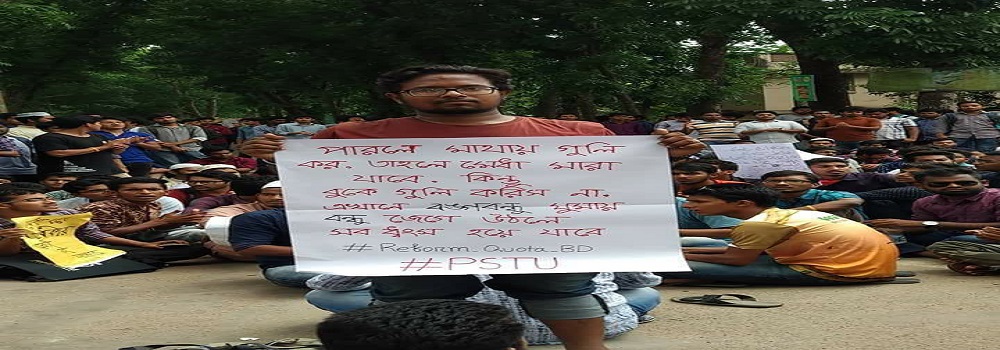 পারলে মাথায় গুলি
কর, তাহলে মেধা মারা
যাবে, কিন্তু
বুকে গুলি করিস না,
এখানে বঙ্গবন্ধু ঘুমায়
বন্ধু জেগে উঠলে
সব ধ্বংস হয়ে যাবে
#Reform_Quota_BD
#PSTU